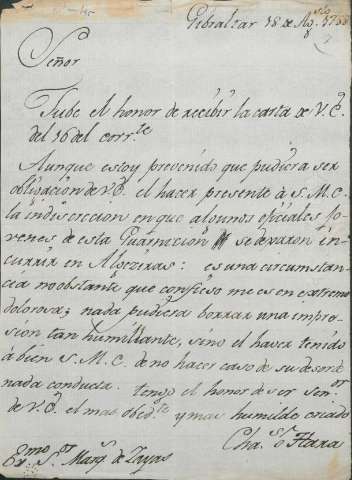 Gibralzar 18 de Ag.sto 1788
Señor
Tube el honor de recibir la carta de V.E.
del 16 del corr.te
Aunque estoy prevenido que pudiera ser
obligacion de V.E. el hacer presente à S.M.C.
la indiscrecion en que algunos oficiales jo-
venes de esta Guarnicion se dexaron in-
currir en Algeziras: es una circumstan-
cia noobstante que confieso me es en extremo
dolorosa; nada pudiera borrar una impre-
sion tan humillante, sino el haver tenido
à bien S.M.C. de no hacer caso de su desorde
nada conducta. tengo el honor de ser Sen.or
de V.E. el mas obed.te y mas humilde criado
Cha.s o Hara
Ex.mo S.or Marq.s de Zayas